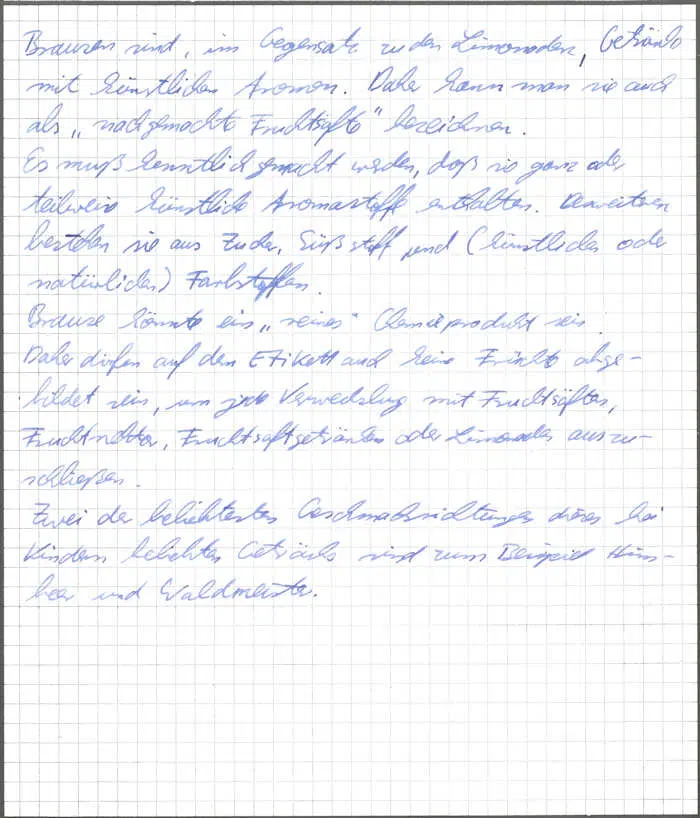 Brausen sind, im Gegensatz zu den Limonaden, Getränke
mit künstlichen Aromen. Daher kann man sie auch
als „nachgemachte Fruchtsäfte" bezeichnen.
Es muß kenntlich gemacht werden, daß sie ganz oder
teilweise künstliche Aromastoffe enthalten. Desweiteren
bestehen sie aus Zucker, Süßstoff und (künstlichen oder
natürlichen) Farbstoffen.
Brause könnte ein „reines" Chemieprodukt sein.
Daher dürfen auf dem Etikett auch keine Früchte abge-
bildet sein, um jede Verwechslung mit Fruchtsäften,
Fruchtnektar, Fruchtsaftgetränken oder Limonaden auszu-
schließen.
Zwei der beliebtesten Geschmacksrichtungen dieses bei
Kindern beliebten Getränks sind zum Beispiel Him-
beer und Waldmeister.